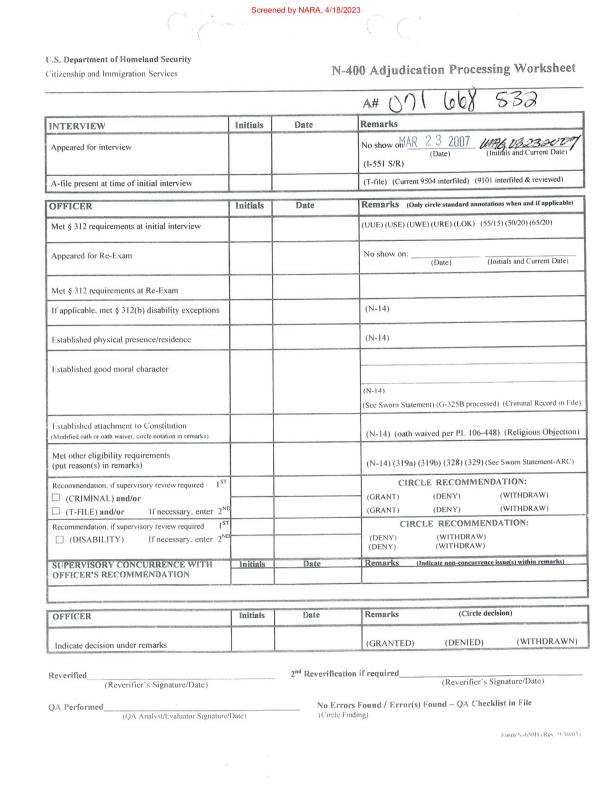 Screened by NARA, 4/18/2023
U.S. Department of Homeland Security
Citizenship and Immigration Services
N-400 Adjudication Processing Worksheet
A# 071 668 532
INTERVIEW Initials Date Remarks
Appeared for interview
No show on MAR 23 2007
(Date) (Initials and Current Date)
(I-551 S/R)
A-file present at time of initial interview (T-file) (Current 9504 interfiled) (9101 interfiled & reviewed)
OFFICER Initials Date Remarks (Only circle standard annotations when and if applicable)
Met § 312 requirements at initial interview (UUE) (USE) (UWE) (URE) (LOK) (55/15) (50/20) (65/20)
Appeared for Re-Exam No show on:
(Date) (Initials and Current Date)
Met § 312 requirements at Re-Exam
If applicable, met § 312(b) disability exceptions (N-14)
Established physical presence/residence (N-14)
Established good moral character
(N-14)
(See Sworn Statement) (G-325B processed) (Criminal Record in File)
Established attachment to Constitution
(Modified oath or oath waiver, circle notation in remarks) (N-14) (oath waived per PL 106-448) (Religious Objection)
Met other eligibility requirements
(put reason(s) in remarks) (N-14) (319a) (319b) (328) (329) (See Sworn Statement-ARC)
Recommendation, if supervisory review required 1ST CIRCLE RECOMMENDATION:
(CRIMINAL) and/or (GRANT) (DENY) (WITHDRAW)
(T-FILE) and/or If necessary, enter 2ND (GRANT) (DENY) (WITHDRAW)
Recommendation, if supervisory review required 1ST CIRCLE RECOMMENDATION:
(DISABILITY) If necessary, enter 2ND (DENY) (WITHDRAW)
(DENY) (WITHDRAW)
SUPERVISORY CONCURRENCE WITH Initials Date Remarks (Indicate non-concurrence issue(s) within remarks)
OFFICER'S RECOMMENDATION
OFFICER Initials Date Remarks (Circle decision)
Indicate decision under remarks (GRANTED) (DENIED) (WITHDRAWN)
Reverified 2nd Reverification if required
(Reverifier's Signature/Date) (Reverifier's Signature/Date)
QA Performed No Errors Found / Error(s) Found – QA Checklist in File
(QA Analyst/Evaluator Signature/Date) (Circle Finding)